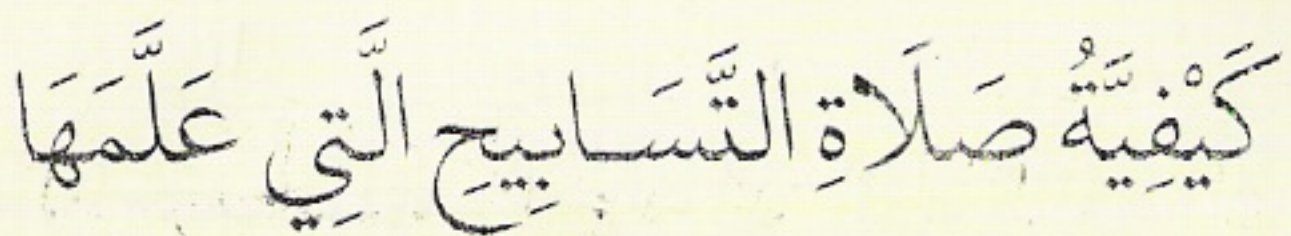 كَيْفِيَّةُ صَلَاةِ التَّسَابِيحِ الَّتِي عَلَّمَهَا